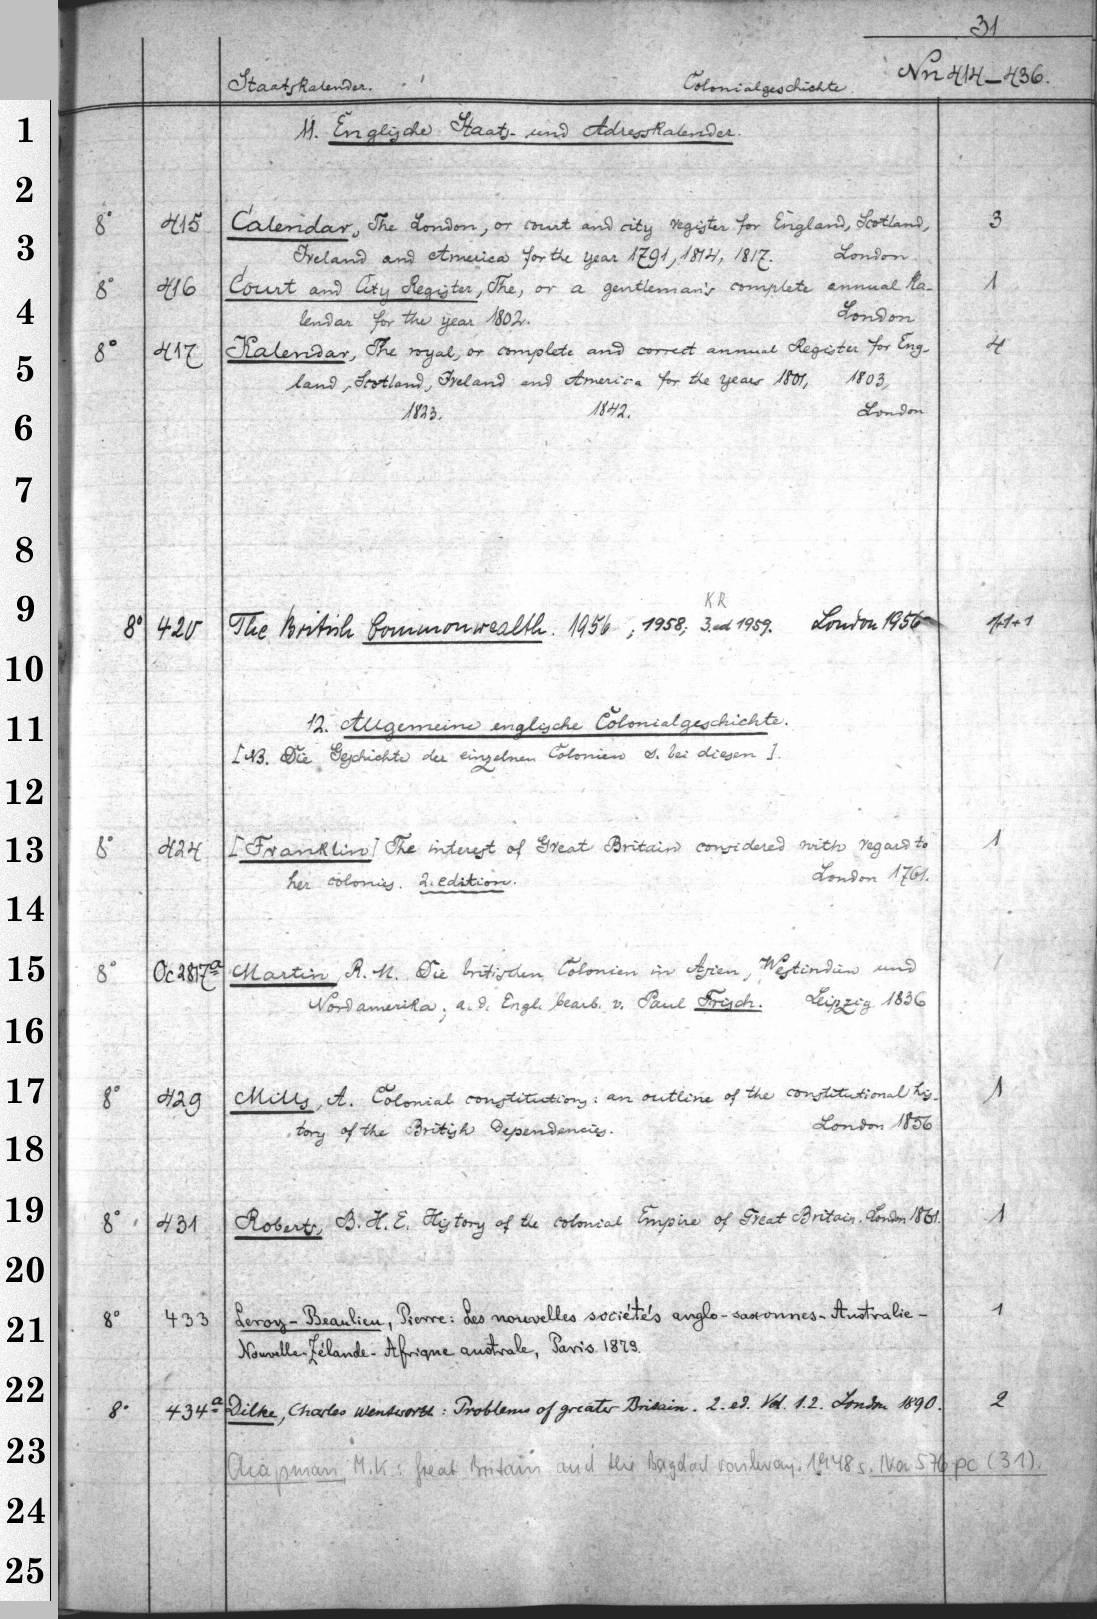 31
Staatskalender. Colonialgeschichte. Nrr 414–436.
1 11. Englische Staats- und Adresskalender.
2
8° 415 Calendar, The London, or court and city register for England, Scotland, 3
3 Ireland and America for the year 1791, 1814, 1817. London
8° 416 Court and City Register, The, or a gentleman's complete annual Ka- 1
4 lendar for the year 1802. London
8° 417 Kalendar, The royal, or complete and correct annual Register for Eng- 4
5 land, Scotland, Ireland and America for the years 1801, 1803,
6 1823. 1842. London
7
8
KR
9 8° 420 The British Commonwealth. 1956 ; 1958; 3. ed 1959. London 1956 1+1+1
10
11 12. Allgemeine englische Colonialgeschichte.
[NB. Die Geschichte der einzelnen Colonien s. bei diesen].
12
13 8° 424 [Franklin] The interest of Great Britain considered with regard to 1
her colonies. 2. edition. London 1761.
14
15 8° Oc 2817a Martin, R. M. Die britischen Colonien in Asien, Westindien und 1
Nordamerika; a. d. Engl. bearb. v. Paul Frisch. Leipzig 1836
16
17 8° 429 Mills, A. Colonial constitutions: an outline of the constitutional his- 1
tory of the British Dependencies. London 1856
18
19 8° 431 Roberts, B. H. E. History of the colonial Empire of Great Britain. London 1861. 1
20
8° 433 Leroy-Beaulieu, Pierre: Les nouvelles sociétés anglo-saxonnes - Australie - 1
21 Nouvelle-Zélande - Afrique australe, Paris
22 8° 434a Dilke, Charles Wentworth: Problems of greater Britain. 2. ed. Vol. 1.2. London 1890. 2
23 Chapman, M.K.: Great Britain and the Bagdad railway. 1948 s. Na 576 pc (31).
24
25